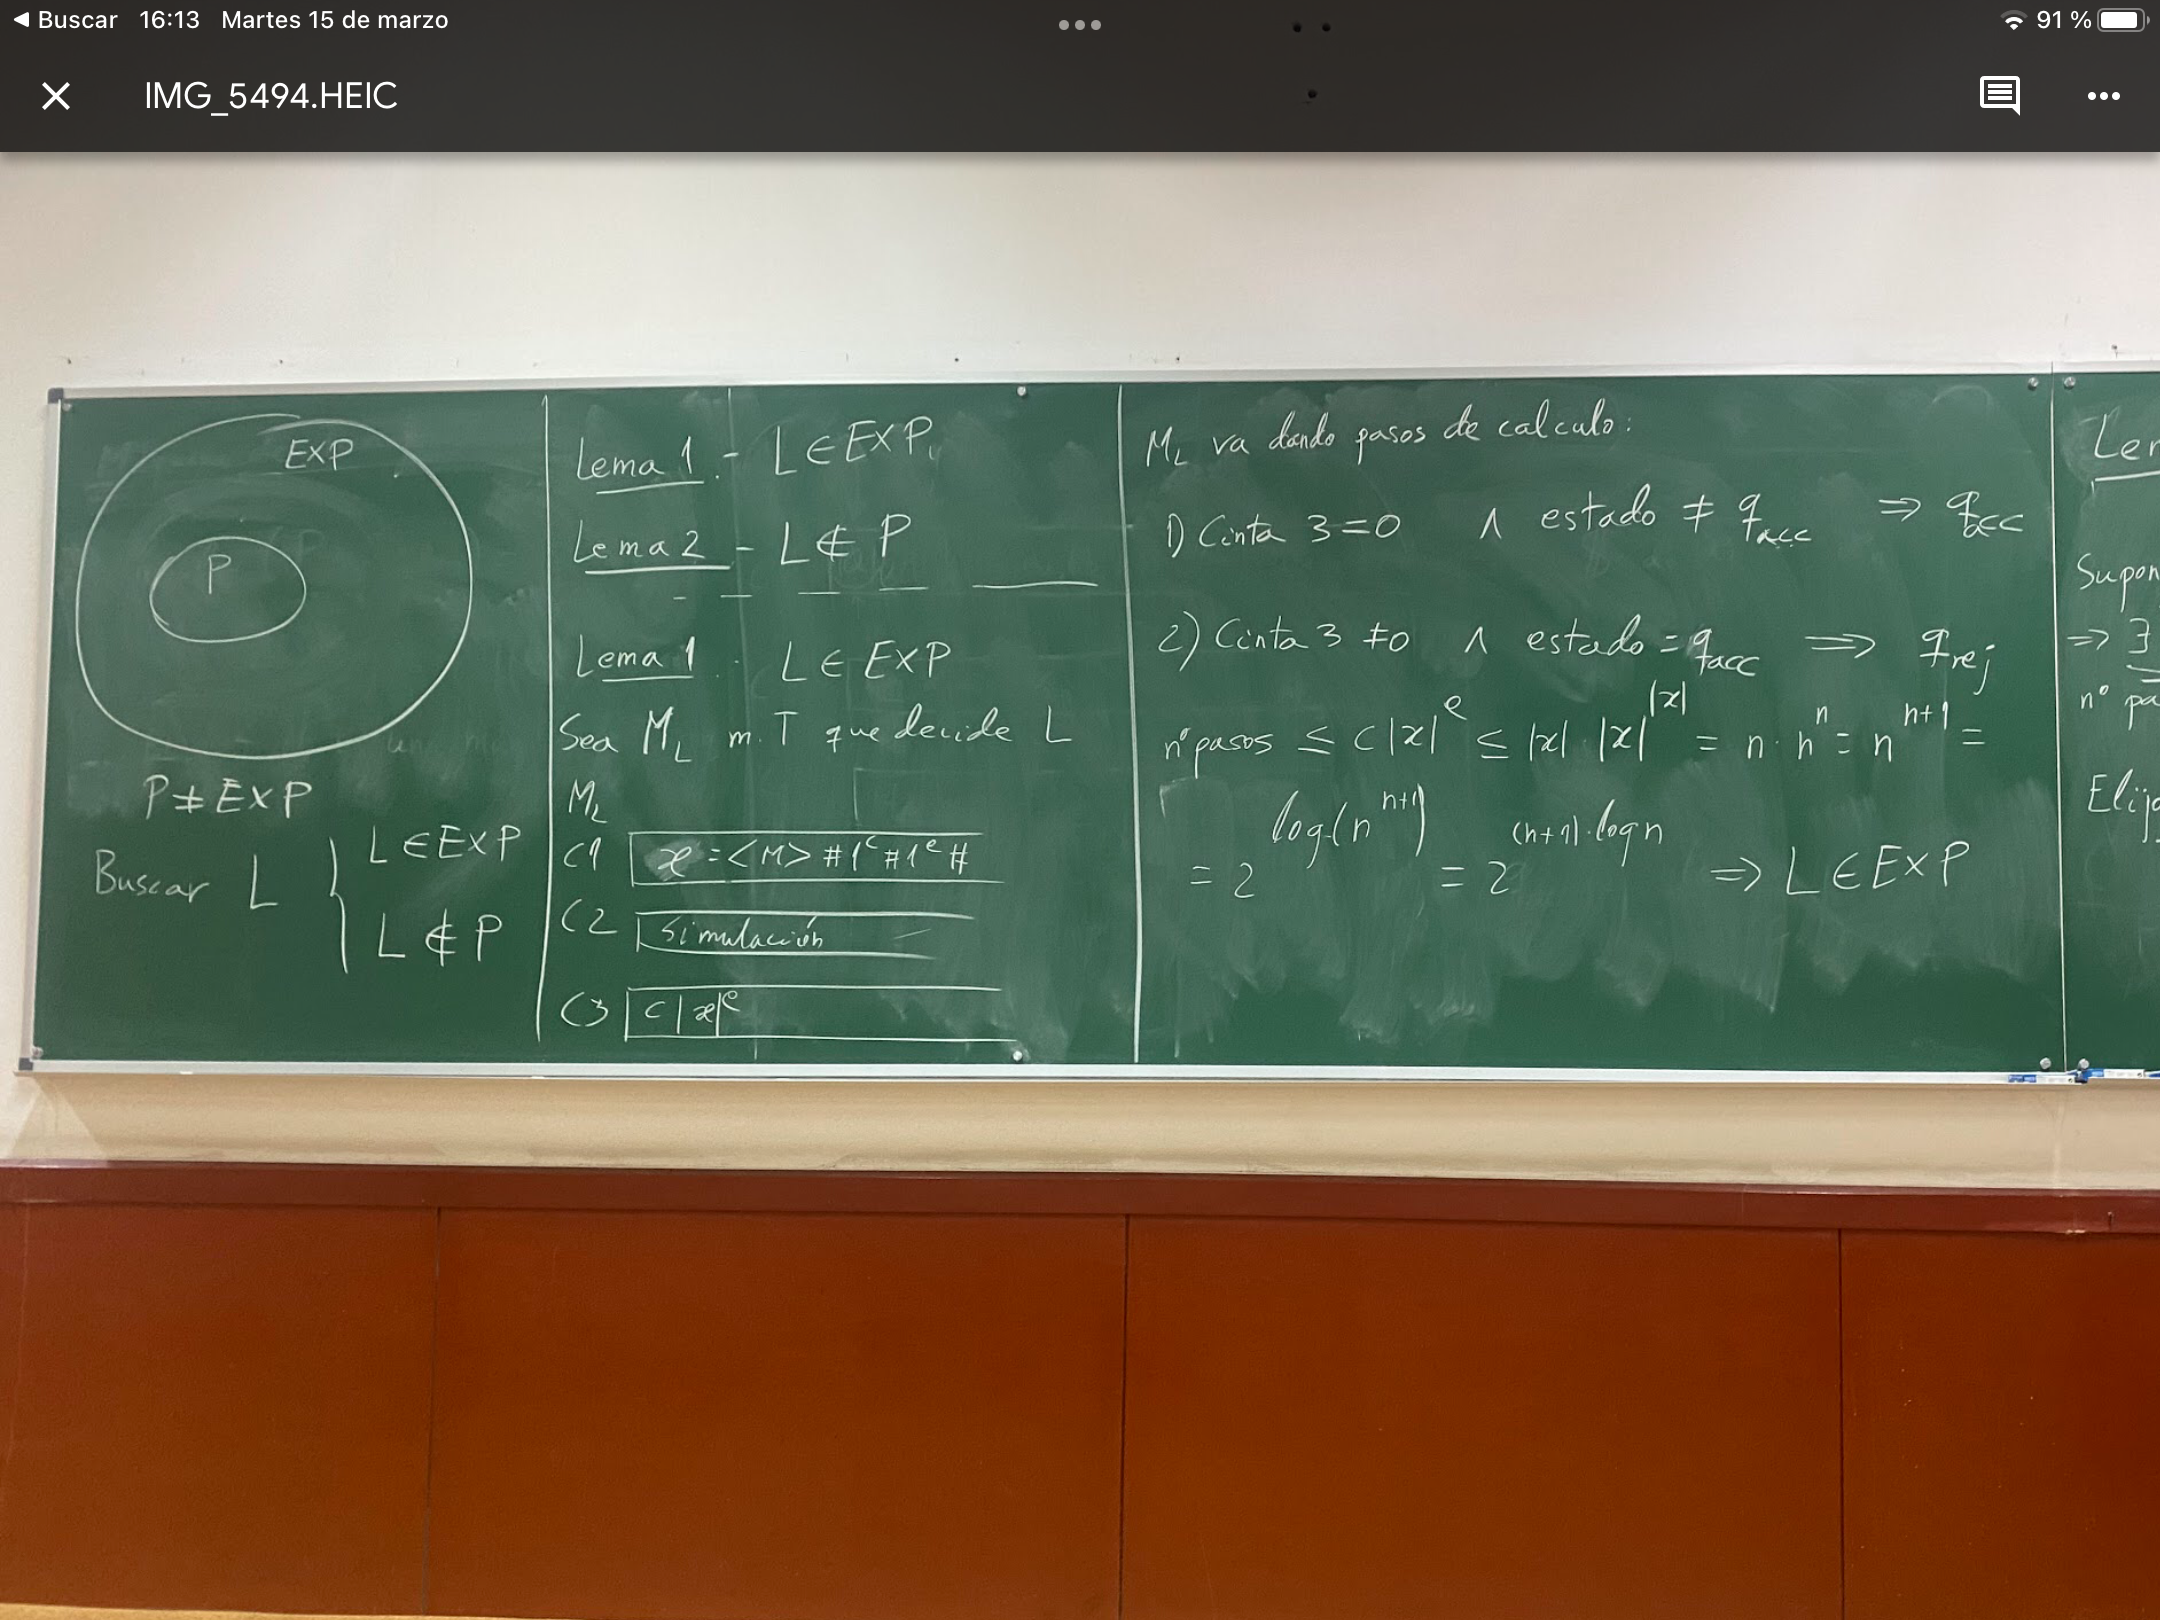 Buscar 16:13 Martes 15 de marzo 91 %
IMG_5494.HEIC
EXP
P
P ≠ EXP
Buscar L { L ∈ EXP
L ∉ P
Lema 1.- L ∈ EXP
Lema 2 - L ∉ P
Lema 1. L ∈ EXP
Sea M_L m. T que decide L
M_L
C1 x = <M> # 1^c # 1^e #
C2 simulación
C3 c|x|^e
M_L va dando pasos de calculo:
1) Cinta 3 = 0 ∧ estado ≠ q_acc ⇒ q_acc
2) Cinta 3 ≠ 0 ∧ estado = q_acc ⇒ q_rej
nº pasos ≤ c|x|^e ≤ |x| · |x|^|x| = n · n^n = n^{n+1} =
= 2^{log(n^{n+1})} = 2^{(n+1)·log n} ⇒ L ∈ EXP
Supon
⇒ ∃
nº pa